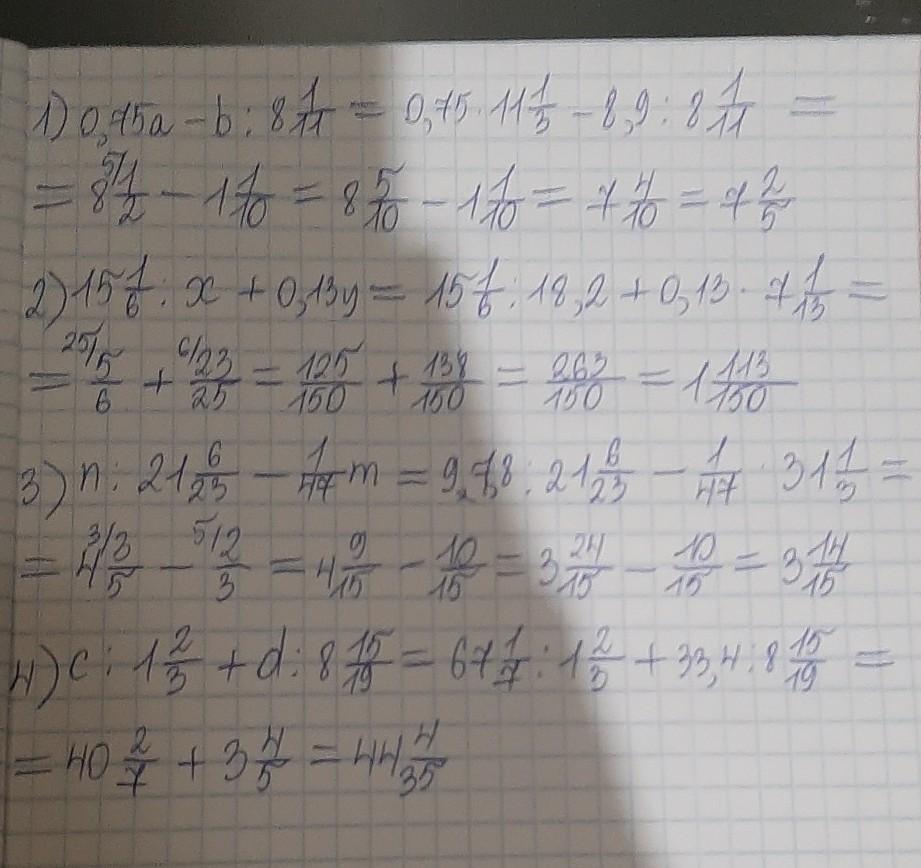 1) 0,75a − b : 8 1/11 = 0,75 · 11 1/3 − 8,9 : 8 1/11 =
= 8 5/1/2 − 1 1/10 = 8 5/10 − 1 1/10 = 7 4/10 = 7 2/5
2) 15 1/6 : x + 0,13y = 15 1/6 : 18,2 + 0,13 · 7 1/13 =
= 25/5/6 + 6/23/25 = 125/150 + 138/150 = 263/150 = 1 113/150
3) n : 21 6/23 − 1/47 m = 97,8 : 21 6/23 − 1/47 · 31 1/3 =
= 4 3/3/5 − 5/2/3 = 4 9/15 − 10/15 = 3 24/15 − 10/15 = 3 14/15
4) c : 1 2/3 + d : 8 15/19 = 67 1/7 : 1 2/3 + 33,4 : 8 15/19 =
= 40 2/7 + 3 4/5 = 44 4/35